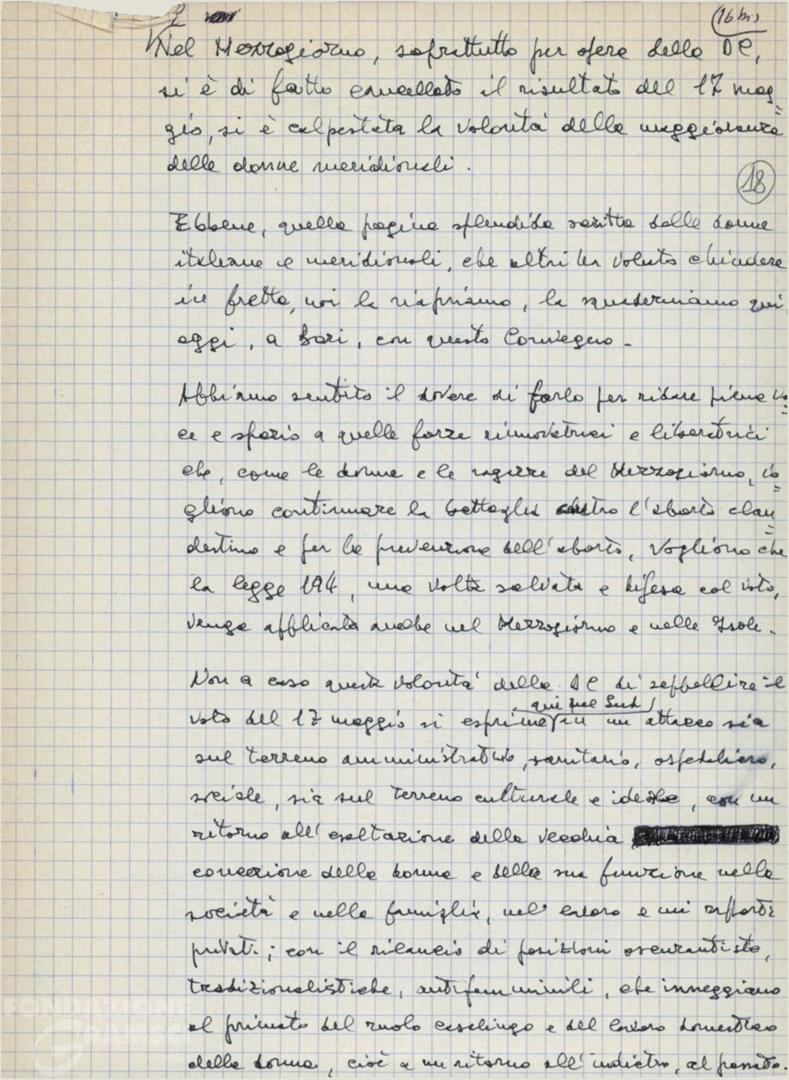 2
(16 bis)
Nel Mezzogiorno, soprattutto per opera della DC,
si è di fatto cancellato il risultato del 17 mag=
gio, si è calpestata la volontà della maggioranza
delle donne meridionali.
18
Ebbene, quella pagina splendida scritta dalle donne
italiane e meridionali, che altri ha voluto chiudere
in fretta, noi la riapriamo, la squaderniamo qui,
oggi, a Bari, con questo Convegno.
Abbiamo sentito il dovere di farlo per ridare piena vo=
ce e spazio a quelle forze rinnovatrici e liberatrici
che, come le donne e le ragazze del Mezzogiorno, vo=
gliono continuare la battaglia contro l'aborto clan=
destino e per la prevenzione dell'aborto, vogliono che
la legge 194, una volta salvata e difesa col voto,
venga applicata anche nel Mezzogiorno e nelle Isole.
Non a caso questa volontà della DC di seppellire il
qui nel Sud
voto del 17 maggio si esprime in un attacco sia
sul terreno amministrativo, sanitario, ospedaliero,
sociale, sia sul terreno culturale e ideale, con un
ritorno all'esaltazione della vecchia
concezione della donna e della sua funzione nella
società e nella famiglia, nel lavoro e nei rapporti
privati; con il rilancio di posizioni oscurantiste,
tradizionalistiche, antifemminili, che inneggiano
al primato del ruolo casalingo e del lavoro domestico
della donna, cioè a un ritorno all'indietro, al passato.